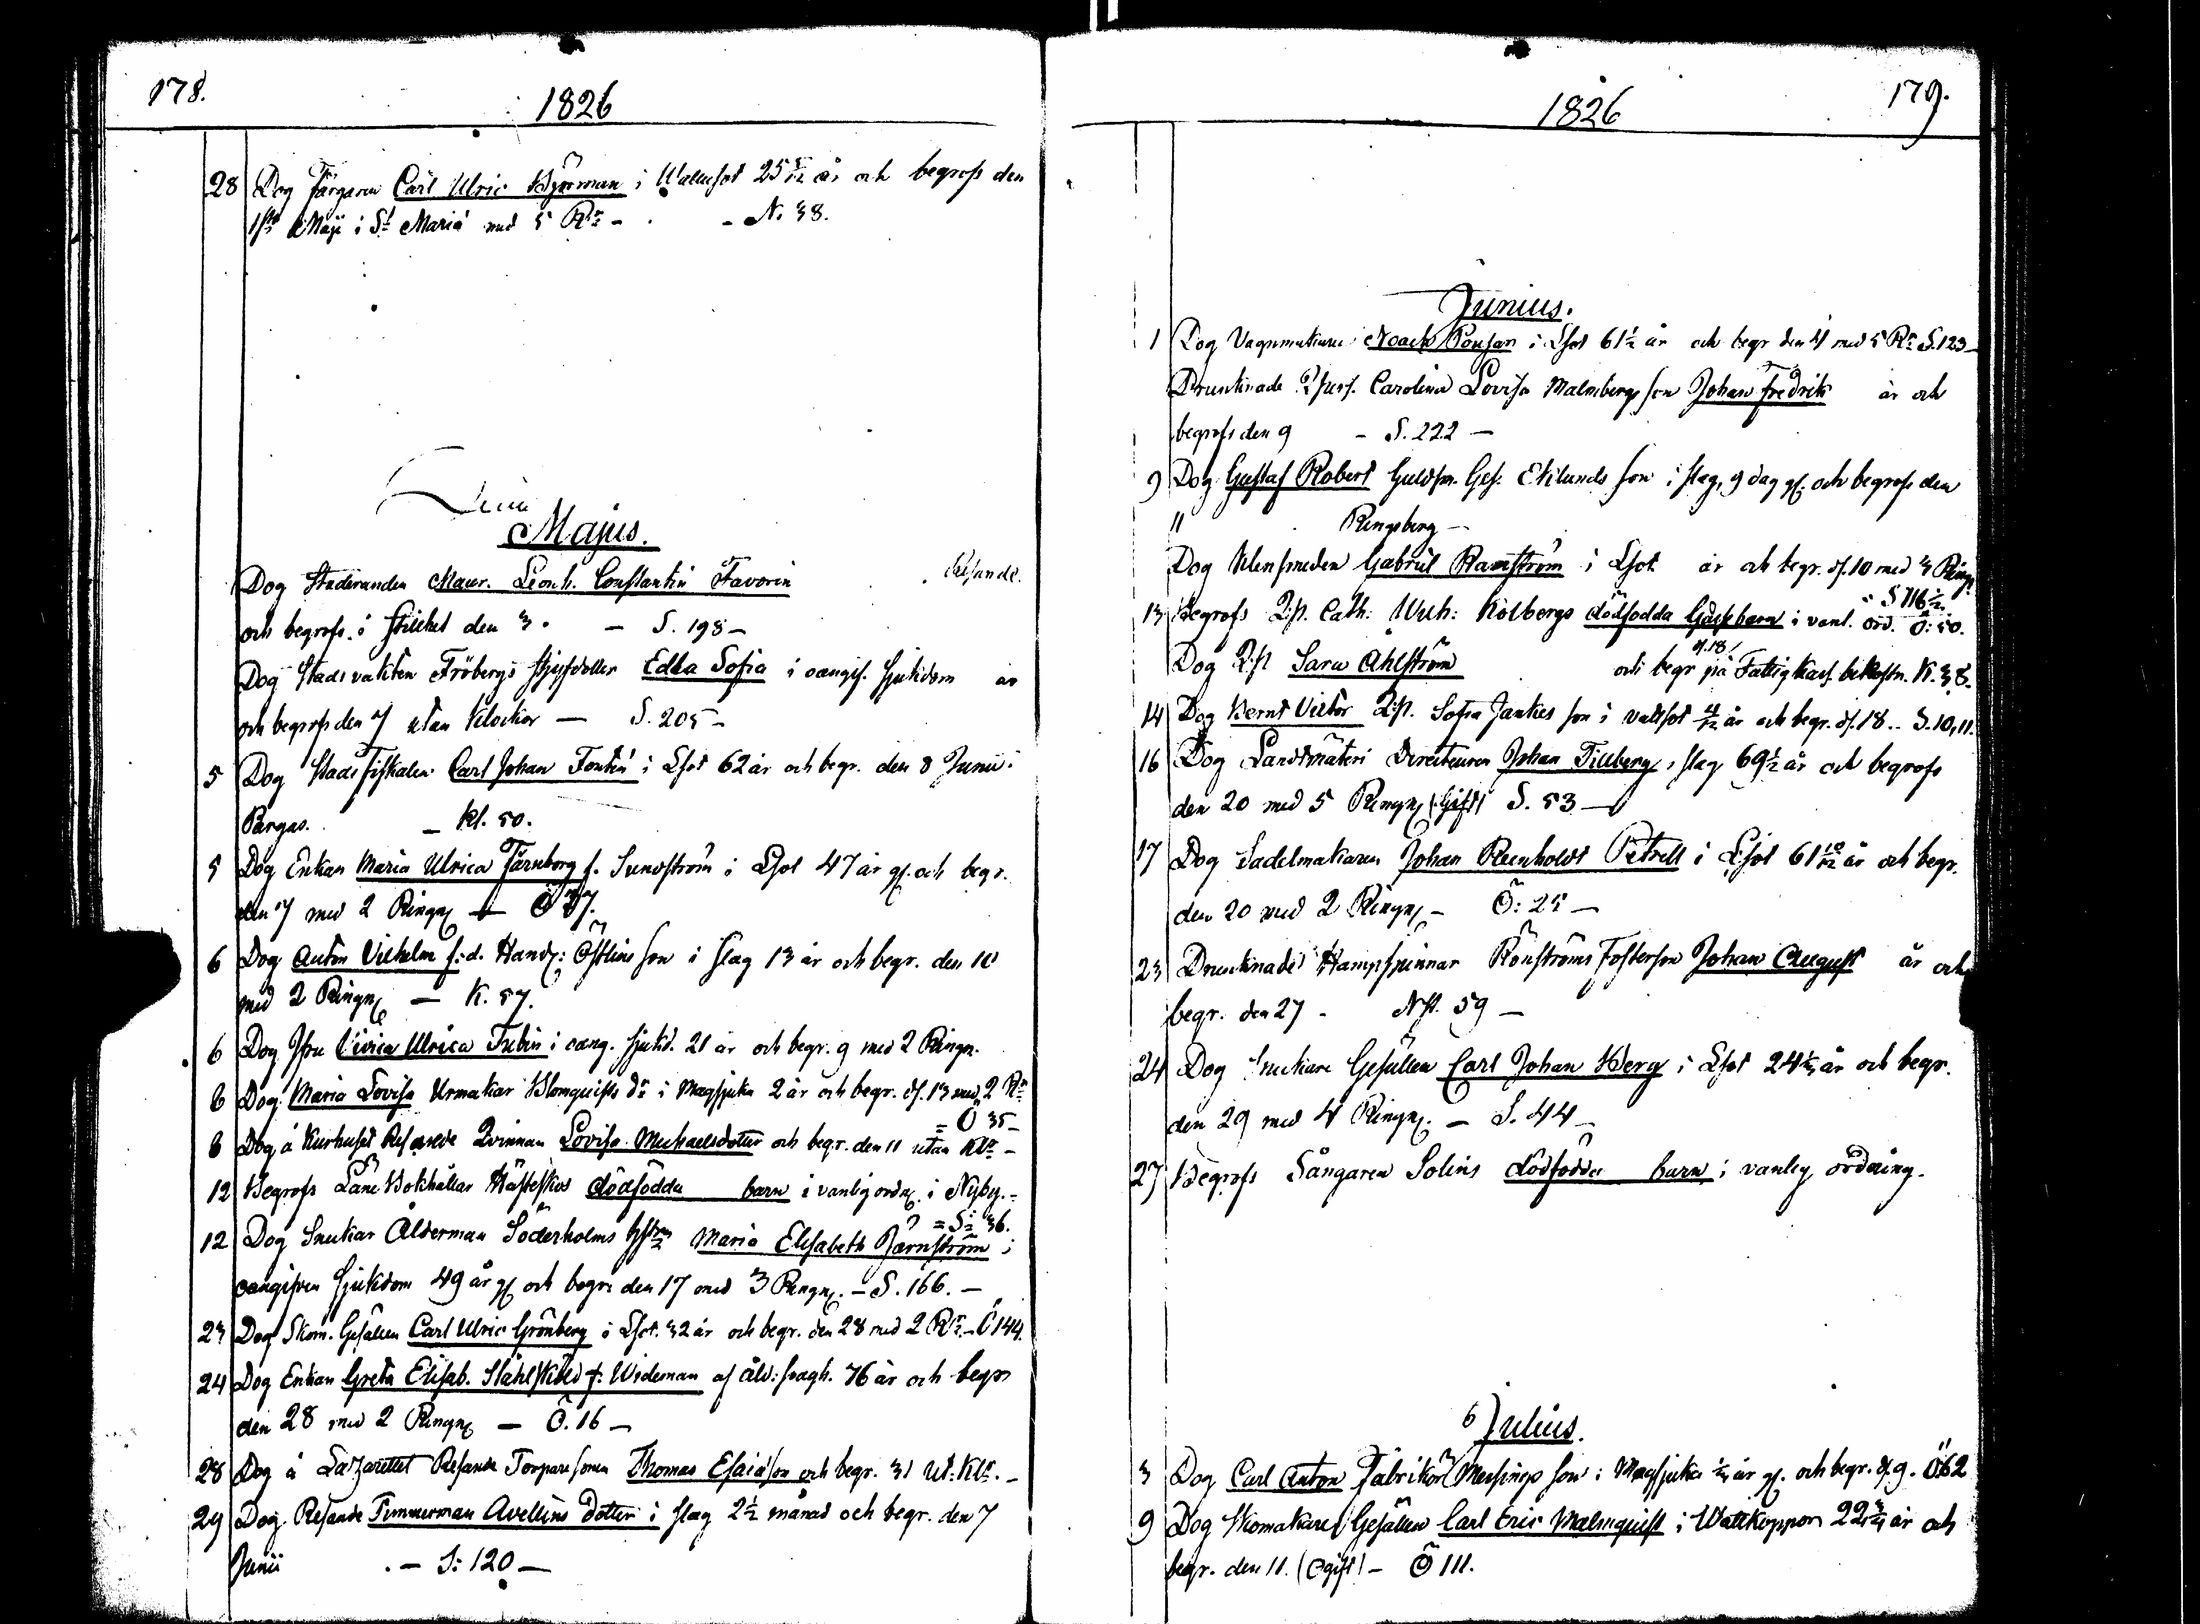 178.
1826
28 Dog Färgaren Carl Ulric Byrman i Wattusot 25 5/12 år och begrofs den
1sta Maji i St Mariæ med 5 Rr - - N. 38.
Majus.
Dog Studeranden Maur. Leonh. Constantin Favorin Resande.
och begrofs. i stillhet den 3. - S. 198 -
Dog Stadsvakten Fröbergs styfdotter Edla Sofia i oangif. sjukdom år
och begrofs den 7 utan klockor - S. 205 -
5 Dog Stadsfiskalen Carl Johan Fontin i Lsot 62 år och begr. den 8 Junii i
Pargas. - Kl. 50.
5 Dog Enkan Maria Ulrica Tärnborg f. Sundström i Lsot 47 år gl. och begr.
den 7 med 2 Ringn. - Ö 37.
6 Dog Anton Vilhelm f.d. Handl: Östlins son i slag 13 år och begr. den 10
med 2 Ringn. - K. 57.
6 Dog Jfru Ulrica Tubin i oang. sjukd. 21 år och begr. 9 med 2 Ringn.
8 Dog Maria Lovisa Urmakar Blomquists dr i Magsjuka 2 år och begr. d. 13 med 2 Rr
= Ö 35 -
8 Dog å Kurhuset Resande Qvinnan Lovisa Michaelsdotter och begr. den 11 utan Klr -
12 Begrofs Läne Bokhållar Hästeskos dödfödda barn i vanlig ordn. i Nyby. -
= S: 36.
12 Dog Snickar Ålderman Söderholms hstru Maria Elisabeth Järnström i
oangifven sjukdom 49 år gl. och begr: den 17 med 3 Ringn. - S. 166. -
23 Dog Skom. Gesällen Carl Ulric Grönberg i Lsot. 32 år och begr. den 28 med 2 Rr - Ö 144.
24 Dog Enkan Greta Elisab. Stålsköld f. Wideman af åld: svagh. 76 år och begr
den 28 med 2 Ringn. - Ö. 16 -
28 Dog å Lazarettet Resande Torparesonen Thomas Esaiason och begr. 31 ut. Klr. -
29 Dog Resande Timmerman Avellins dotter i slag 2 1/2 månad och begr. den 7
Junii - S: 120 -
1826
179.
Junius.
1 Dog Vagnmakaren Noach Ponsan i Lsot 61 1/2 år och begr den 4 med 5 Rr S. 123 -
Drunknade Carolina Lovisa Malmbergs son Johan Fredrik år och
begrofs den 9 - S. 222 -
9 Dog Gustaf Robert Guldsm. Ges. Eklunds son i slag, 9 dag gl. och begrofs den
11 Ringsberg -
Dog Klensmeden Gabriel Ramström i Lsot år och begr. d. 10 med 3 Ringn.
S 116 1/2
13 Begrofs Q:p. Cath: Wilh: Kolbergs dödfödda Gossebarn i vanl. ord. Ö: 50.
Dog Q:p. Sara Ahlström d. 18 och begr på Fattigkass. bekostn. K. 38.
14 Dog Bernt Victor Q:p. Sofia Jankes son i vattsot 4/12 år och begr. d. 18. - S. 10, 11.
16 Dog Landtmäteri Directeuren Johan Tillberg, slag 69 1/2 år och begrofs
den 20 med 5 Ringn. (Gift) S. 53 -
17 Dog Sadelmakaren Johan Reinholdt Petrell i Lsot 61 10/12 år och begr.
den 20 med 2 Ringn. - Ö: 25 -
23 Drunknade Hampspinnar Rönströms Fosterson Johan August år och
begr. den 27 - Np. 59 -
24 Dog Snickare Gesällen Carl Johan Berg i Lsot 24 3/4 år och begr.
den 29 med 4 Ringn. - S. 44 -
27 Begrofs Sångaren Solins dödfödda barn i vanlig ordning.
Julius.
3 Dog Carl Anton Fabrikör Mersings son i Magsjuka 3/4 år gl. och begr. d. 9. Ö 62
9 Dog Skomakare Gesällen Carl Eric Malmquist i Wattkoppor 22 3/4 år och
begr. den 11. (Ogift) - Ö 111.